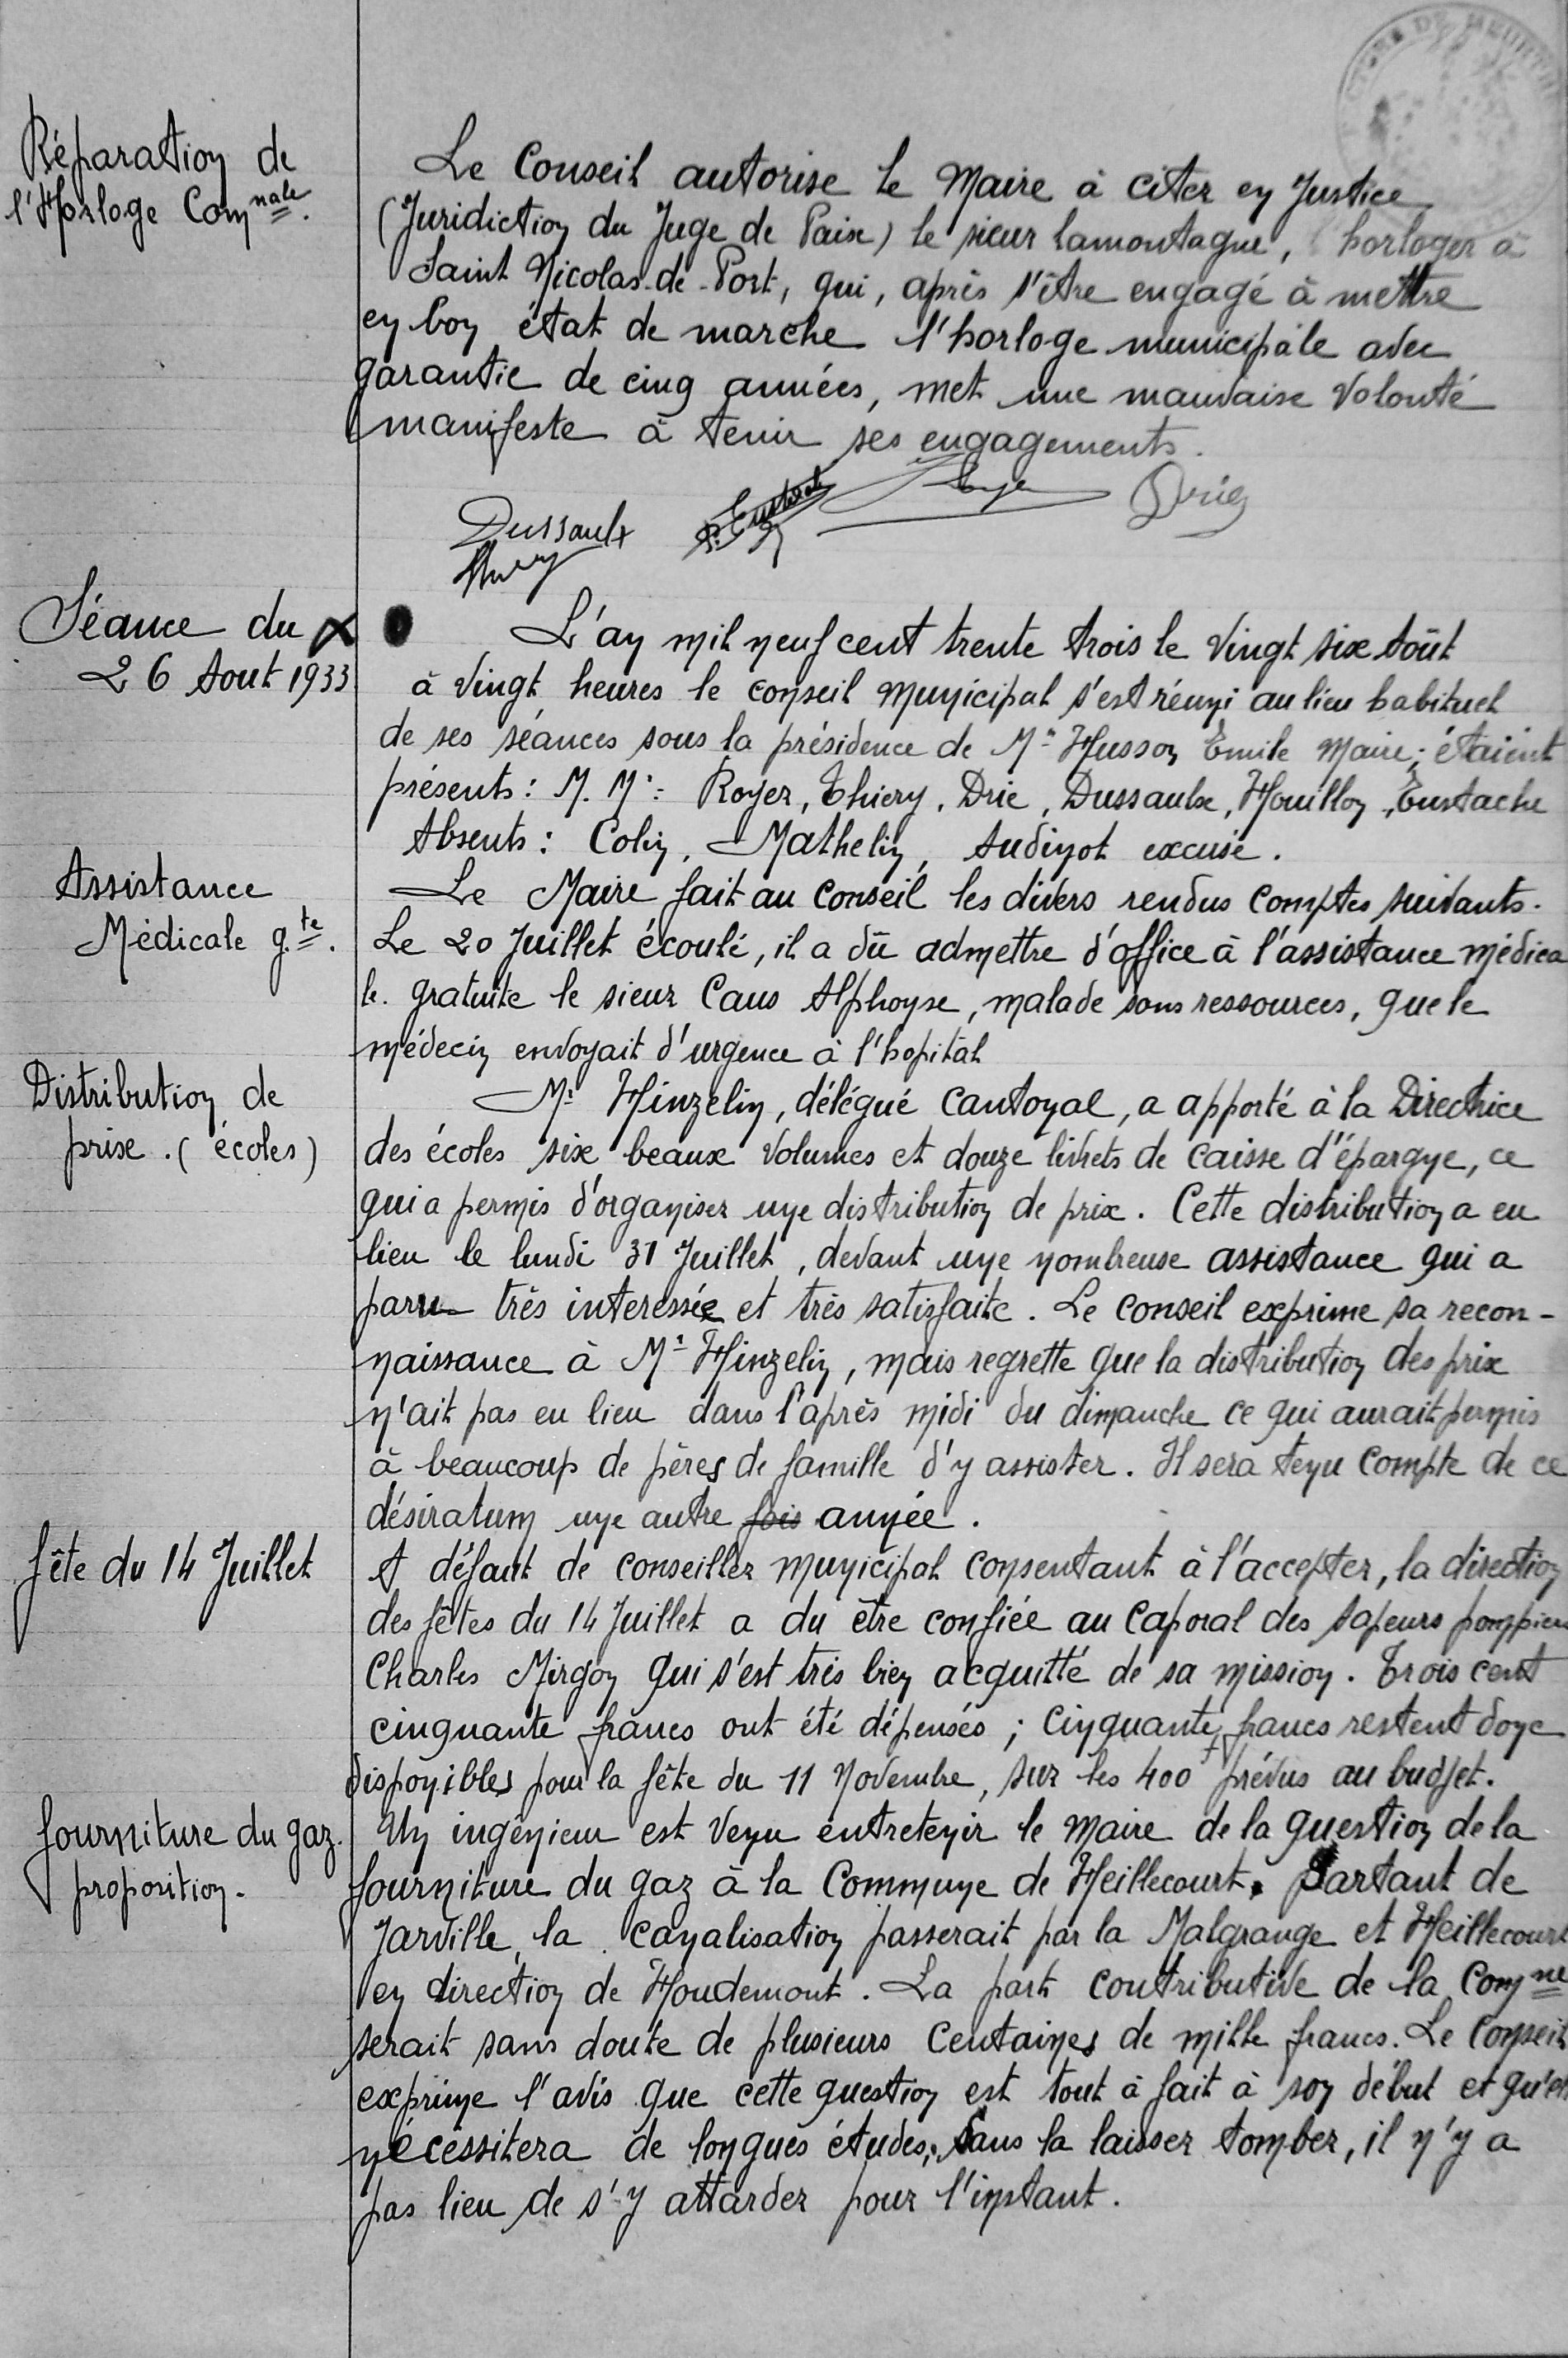 Réparation de
l'Horloge Com nale.
Le Conseil autorise le Maire à citer en Justice
(Juridiction du Juge de Paix) le sieur lamontagne, horloger à
Saint Nicolas-de-Port, qui, après s'être engagé à mettre
en bon état de marche l'horloge municipale avec
garantie de cinq années, met une mauvaise volonté
manifeste à tenir ses engagements.
Dussaulx
Séance du
26 Aout 1933
L'an mil neuf cent trente trois le Vingt six Août
à Vingt heures le conseil municipal s'est réuni au lieu habituel
de ses séances sous la présidence de Mr Husson Emile Maire; étaient
présents: M. M: Royer, Thiery, Drie, Dussaulx, Houillon, Eustache
Absents: Colin, Mathelin, Audinot excusé.
Assistance
Médicale g.te.
Le Maire fait au Conseil les divers rendus comptes suivants.
Le 20 Juillet écoulé, il a dû admettre d'office à l'assistance médica
le. gratuite le sieur Caus Alphonse, malade sans ressources, que le
médecin envoyait d'urgence à l'hopital
Distribution de
prix. (écoles)
Mr Hinzelin, délégué cantonal, a apporté à la Directrice
des écoles six beaux Volumes et douze livrets de caisse d'épargne, ce
qui a permis d'organiser une distribution de prix. Cette distribution a eu
lieu le lundi 31 Juillet, devant une nombreuse assistance qui a
paru très interessée et très satisfaite. Le conseil exprime sa recon-
naissance à Mr Hinzelin, mais regrette que la distribution des prix
n'ait pas eu lieu dans l'après midi du dimanche ce qui aurait permis
à beaucoup de pères de famille d'y assister. Il sera tenu compte de ce
désiratum une autre fois année.
fête du 14 Juillet
A défaut de conseiller municipal consentant à l'accepter, la direction
des fêtes du 14 Juillet a du être confiée au Caporal des sapeurs pompiers
Charles Mirgon qui s'est très bien acquitté de sa mission. Trois cent
cinquante francs ont été dépensés; Cinquante francs restent donc
disponibles pour la fête du 11 Novembre, sur les 400f prévus au budget.
fourniture du gaz.
proposition.
Un ingénieur est venu entretenir le Maire de la question de la
fourniture du gaz à la Commune de Heillecourt. Partant de
Jarville, la canalisation passerait par la Malgrange et Heillecourt
en direction de Houdemont. La part contributive de la Comne
serait sans doute de plusieurs Centaines de mille francs. Le Conseil
exprime l'avis que cette question est tout à fait à son début et qu'elle
nécessitera de longues études, Sans la laisser tomber, il n'y a
pas lieu de s'y attarder pour l'instant.